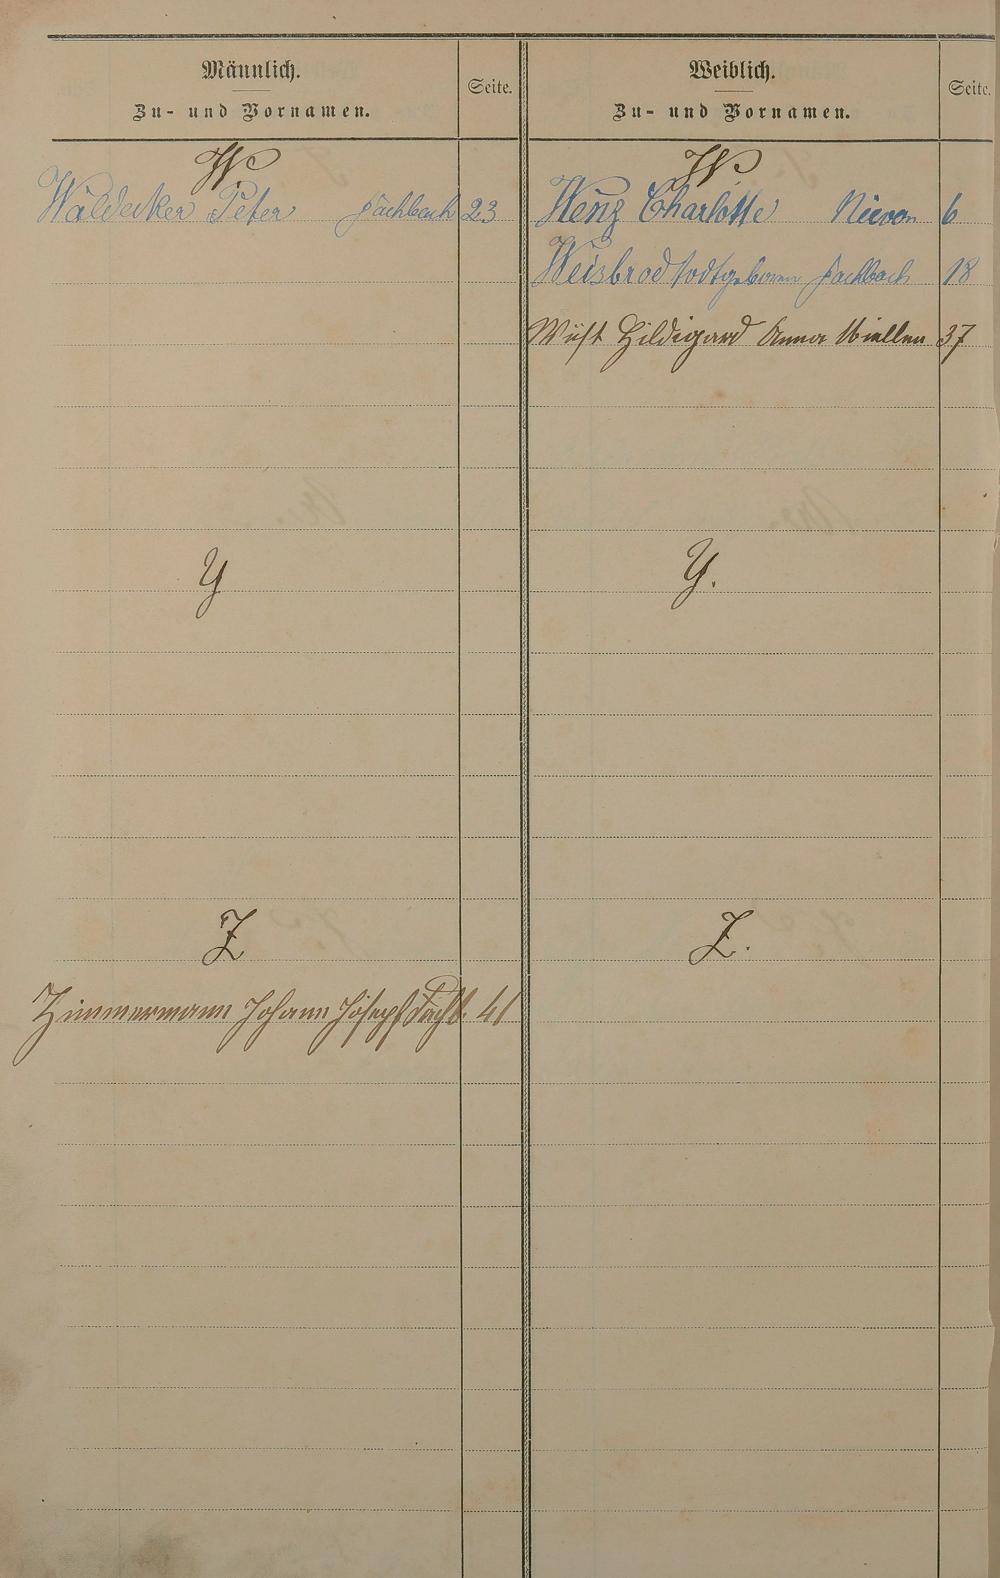 Männlich.
Zu- und Vornamen.
Seite.
W
Waldecker Peter Fachbach 23
Y
Z
Zimmermann Johann Joseph Fachb. 41
Weiblich.
Zu- und Vornamen.
Seite.
W
Wenz Charlotte Nievern 6
Weisbrod todtgeboren Fachbach 18
Wüst Hildigard Anna Miellen 37
Y.
Z.